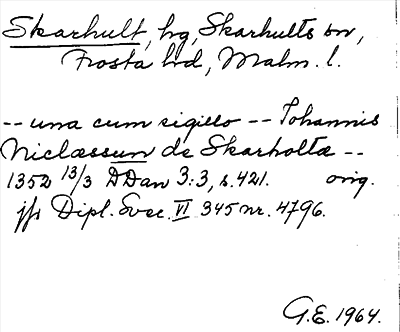 Skarhult, hg, Skarhults sn,
Frosta hd, Malm. l.
-- una cum sigillo -- Johannis
Niclæssun de Skarholta --
1352 13/3 DDan 3:3, s. 421. orig.
jfr Dipl. Svec. VI 345 nr. 4796.
G.E. 1964.